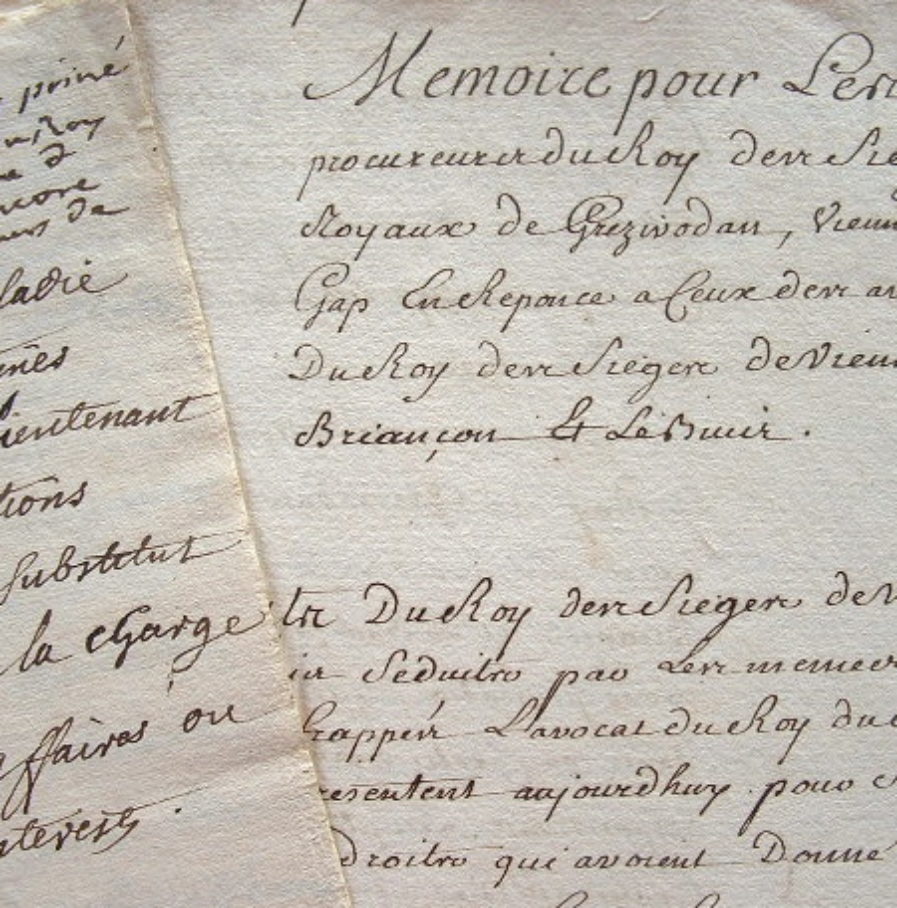 privé
Roy
de
encore
de
ladie
lieutenant
tions
substitut
la charge
affaires ou
interests.
Memoire pour Les
procureurs du Roy des Sie
Royaux de Grezivodan, Vienn
Gap En Reponce a Ceux des av
Du Roy des Sieges de Vienn
Briançon Et Le Buis.
ts Du Roy des Sieges de V
Seduits par Les memes
frappés L'avocat du Roy du
resentent aujourdhuy pour
droits qui avoient Donné